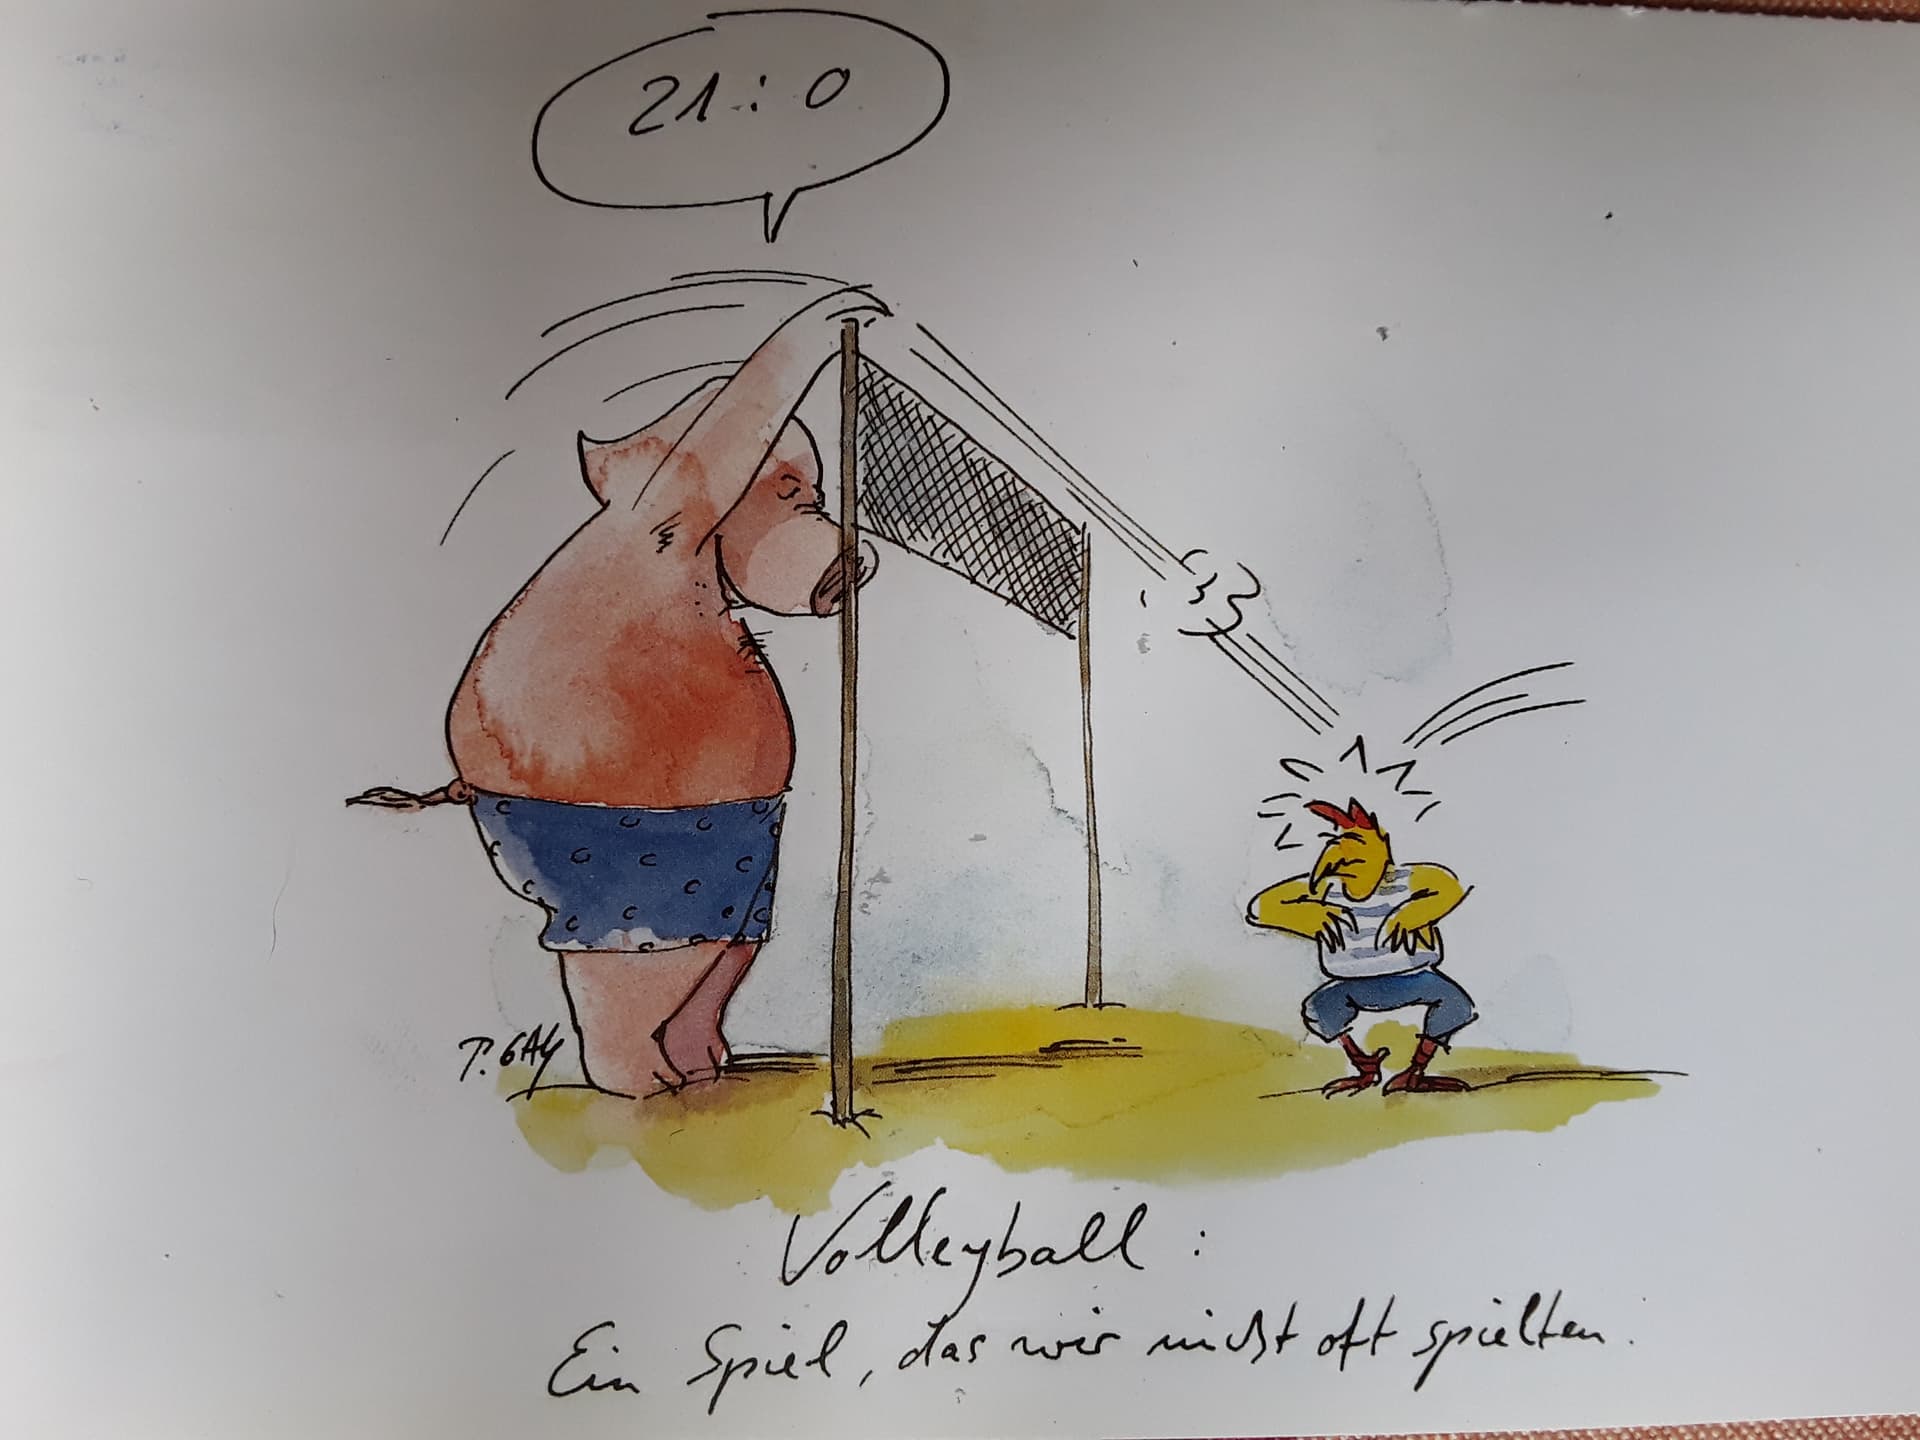 21 : 0
P. GAY
Volleyball :
Ein Spiel, das wir nicht oft spielten.